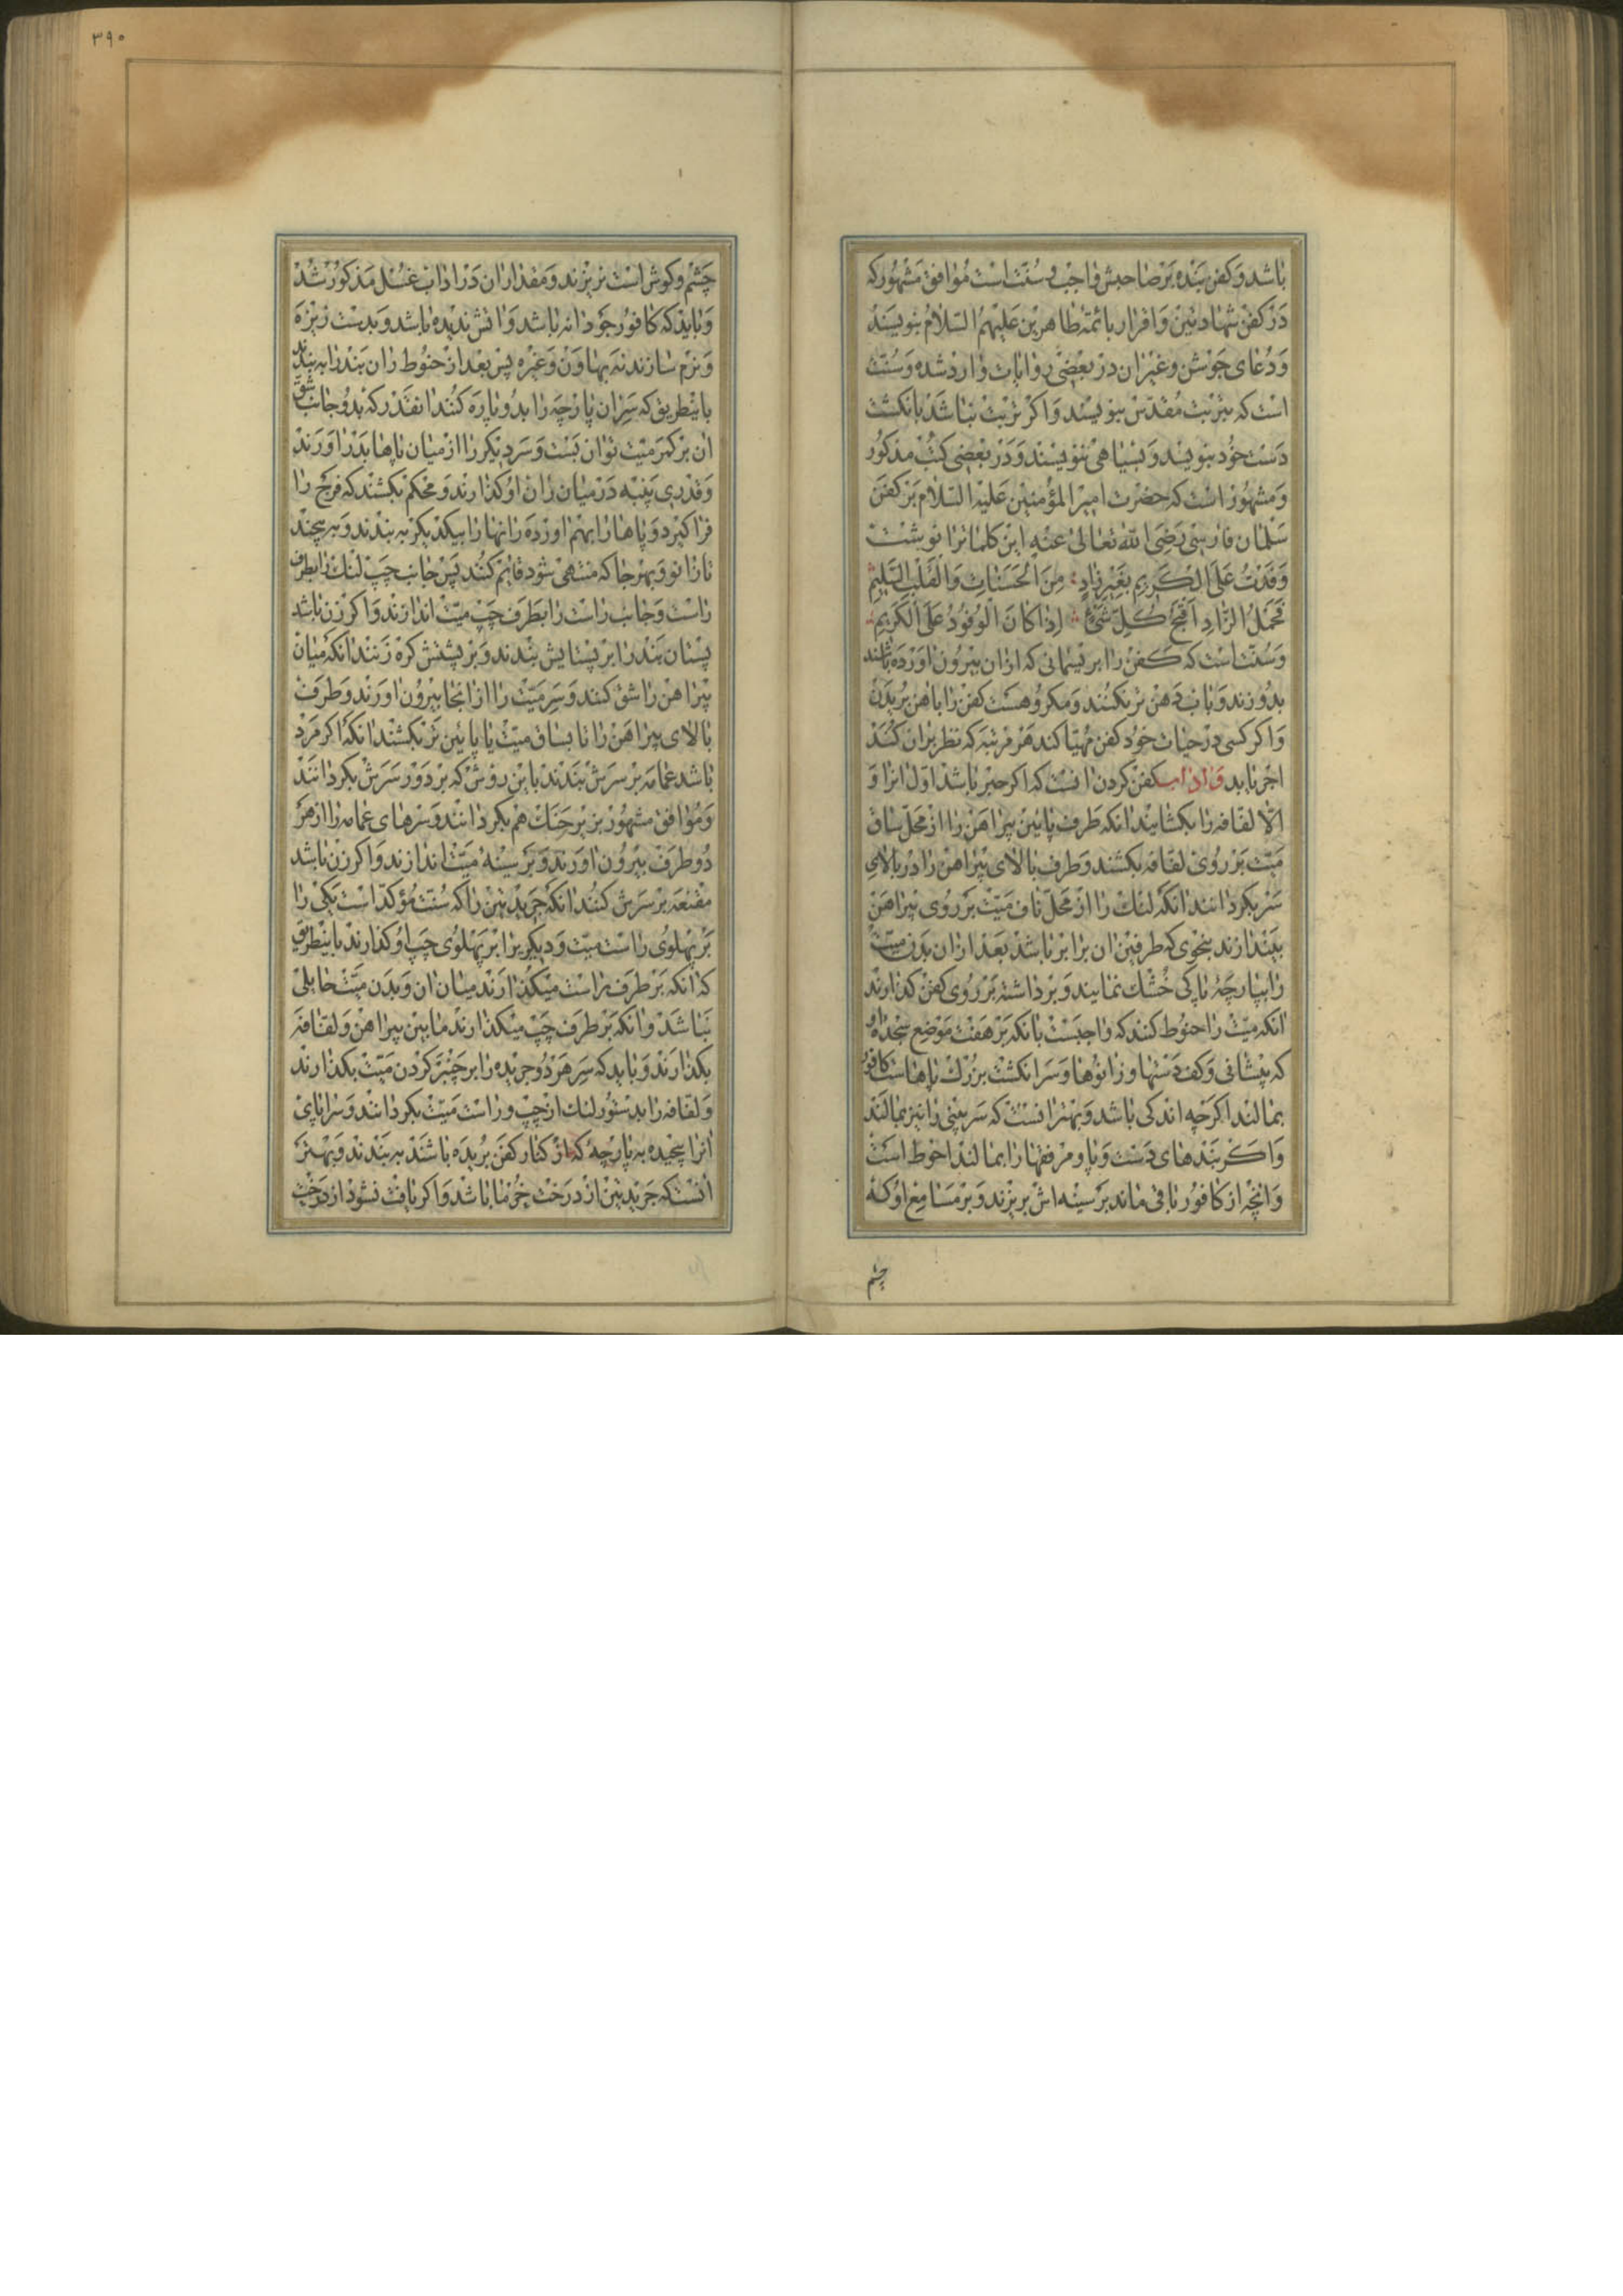 باشد و کفن بنده بر صاحبش واجب و سنت است موافق مشهور که
در کفن شهادتین و اقرار بائمه طاهرین علیهم السلام بنویسند
و دعای جوشن و غیر ان در بعضی روایات وارد شده و سنت
است که بتربت مقدس بنویسند و اکر تربت نباشد بانکشت
دست خود بنویسند و بسیاهی ننویسند و در بعضی کتب مذکور
و مشهور است که حضرت امیر المؤمنین علیه السلام بر کفن
سلمان فارسی رضی الله تعالی عنه این کلماترا نوشت
وَفَدْتُ عَلَی الْکَرِیمِ بِغَیْرِ زادٍ مِنَ الْحَسَناتِ وَالْقَلْبِ السَّلِیمِ
فَحَمْلُ الزّادِ اَقْبَحُ کُلِّ شَیْءٍ اِذا کانَ الْوُفُودُ عَلَی الْکَرِیمِ
و سنت است که کفن را بریسمانی که از ان بیرون اورده باشند
بدوزند و باب دهن تر نکنند و مکروهست کفن را باهن بریدن
و اکر کسی در حیات خود کفن مهیا کند هر مرتبه که نظر بران کند
اجر یابد و اداب کفن کردن انست که اکر حبر باشد اول انرا و
الا لفافه را بکشایند انکه طرف پائین پیراهن را از محل ساق
میت بر روی لفافه بکشند و طرف بالای پیراهن را در بالای
سر بکردانند انکه لنک را از محل ناف میت بر روی پیراهن
بیندازند بنحوی که طرفین ان برابر باشد بعد از ان بدن میت
را بپارچهٔ پاکی خشک نمایند و برداشته بر روی کفن کذارند
انکه میت را حنوط کنند که واجبست بانکه بر هفت موضع سجدهٔ او
که پیشانی و کف دستها و زانوها و سر انکشت بزرک پاهاست کافور
بمالند اکرچه اندکی باشد و بهتر انست که سر بینی را نیز بمالند
و اکر بندهای دست و پا و مرفقها را بمالند احوط است
و انچه از کافور باقی ماند بر سینه اش بریزند و بر مسامع او که
چشم
۳۹۰
چشم و کوش است نریزند و مقدار ان در اداب غسل مذکور شد
و باید که کافور جودانه باشد و اتش ندیده باشد و بدست ریزه
و نرم سازند نه بهاون و غیره پس بعد از حنوط ران بند را به بندند
باینطریق که سر ان پارچه را بدو پاره کنند انقدر که بدو جانب شق
ان بر کمر میت توان بست و سر دیکر را از میان پاها بدر اورند
و قدری پنبه در میان ران او کذارند و محکم بکشند که فرج را
فرا کیرد و پاها را بهم اورده رانها را بیکدیکر به بندند و به پیچند
تا زانو و بهر جا که منتهی شود قایم کنند پس جانب چپ لنک را بطرف
راست و جانب راست را بطرف چپ میت اندازند و اکر زن باشد
پستان بند را بر پستایش بندند و بر پشتش کره زنند انکه میان
پیراهن را شق کنند و سر میت را از انجا بیرون اورند و طرف
بالای پیراهن را تا بساق میت یا پائین تر بکشند انکه اکر مرد
باشد عمامه بر سرش بندند باین روش که بر دور سرش بکردانند
و موافق مشهور بزیر حنک هم بکردانند و سرهای عمامه را از هر
دو طرف بیرون اورند و بر سینهٔ میت اندازند و اکر زن باشد
مقنعه بر سرش کنند انکه جریدتین را که سنت مؤکد است یکی را
بر پهلوی راست میت و دیکریرا بر پهلوی چپ او کذارند باینطریق
که انکه بر طرف راست میکذارند میان ان و بدن میت حایلی
نباشد و انکه بر طرف چپ میکذارند مابین پیراهن و لفافه
بکذارند و باید که سر هر دو جریده را بر چنبر کردن میت بکذارند
و لفافه را بدستور لنک از چپ و راست میت بکردانند و سر و پای
انرا پیچیده به پارچهٔ که از کنار کفن بریده باشند به بندند و بهتر
انست که جریدتین از درخت خرما باشد و اکر یافت نشود از درخت